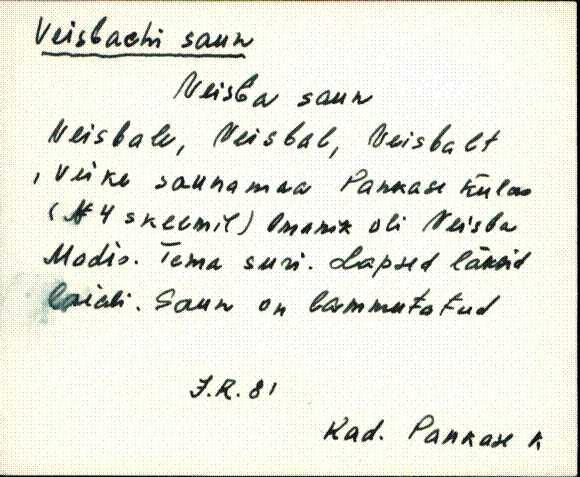 Veisbachi saun
Veisba saun
Veisbale, Veisbal, Veisbalt
, Veike saunamaa Pankase külas
(№ 4 skeemil) Omanik oli Veisba
Madis. Tema suri. Lapsed läksid
laiali. Saun on lammutatud
J.R. 81
Kad. Pankase k